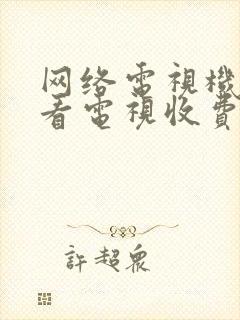 网络電視機
看電視收費
許超眾